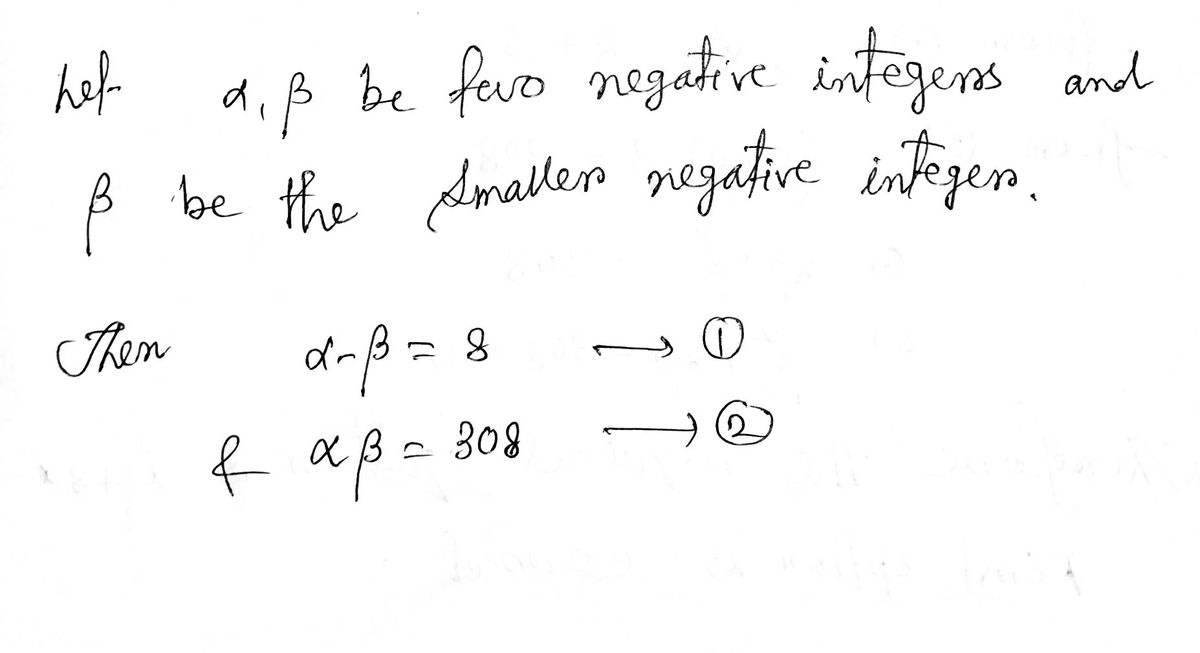 Let α, β be two negative integers and
β be the smaller negative integer.
Then α-β = 8 → ①
& αβ = 308 → ②